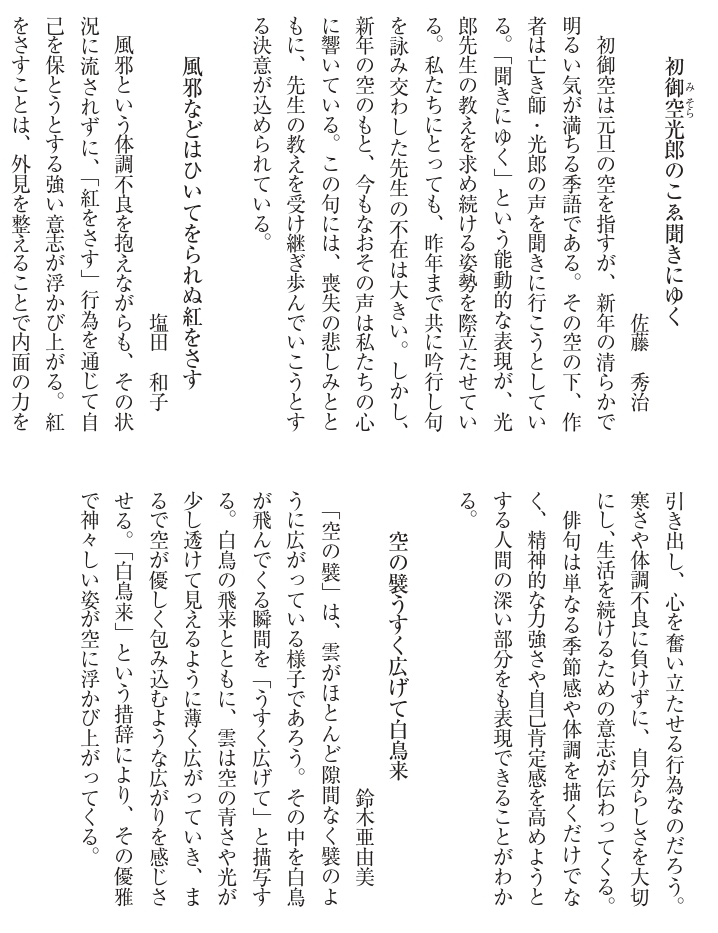 初御空光郎のこゑ聞きにゆく
みそら
佐藤　秀治
初御空は元旦の空を指すが、新年の清らかで
明るい気が満ちる季語である。その空の下、作
者は亡き師・光郎の声を聞きに行こうとしてい
る。「聞きにゆく」という能動的な表現が、光
郎先生の教えを求め続ける姿勢を際立たせてい
る。私たちにとっても、昨年まで共に吟行し句
を詠み交わした先生の不在は大きい。しかし、
新年の空のもと、今もなおその声は私たちの心
に響いている。この句には、喪失の悲しみとと
もに、先生の教えを受け継ぎ歩んでいこうとす
る決意が込められている。
風邪などはひいてをられぬ紅をさす
塩田　和子
風邪という体調不良を抱えながらも、その状
況に流されずに、「紅をさす」行為を通じて自
己を保とうとする強い意志が浮かび上がる。紅
をさすことは、外見を整えることで内面の力を
引き出し、心を奮い立たせる行為なのだろう。
寒さや体調不良に負けずに、自分らしさを大切
にし、生活を続けるための意志が伝わってくる。
俳句は単なる季節感や体調を描くだけでな
く、精神的な力強さや自己肯定感を高めようと
する人間の深い部分をも表現できることがわか
る。
空の襞うすく広げて白鳥来
鈴木亜由美
「空の襞」は、雲がほとんど隙間なく襞のよ
うに広がっている様子であろう。その中を白鳥
が飛んでくる瞬間を「うすく広げて」と描写す
る。白鳥の飛来とともに、雲は空の青さや光が
少し透けて見えるように薄く広がっていき、ま
るで空が優しく包み込むような広がりを感じさ
せる。「白鳥来」という措辞により、その優雅
で神々しい姿が空に浮かび上がってくる。